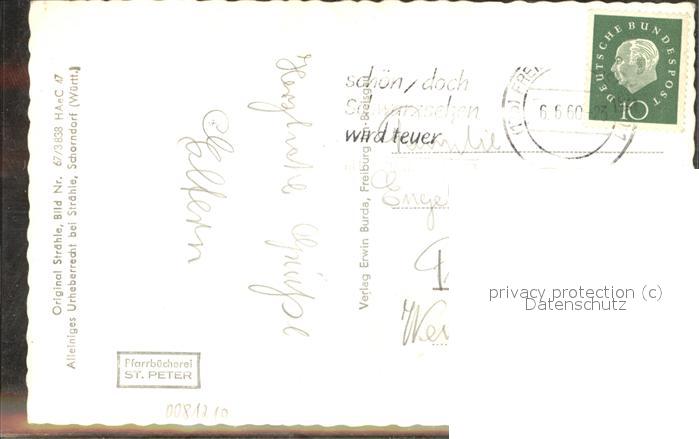 Original Strähle, Bild Nr. 67/3838 HAeC 47
Alleiniges Urheberrecht bei Strähle, Schorndorf (Württ.)
Herzliche Grüße
Eltern
Pfarrbücherei
ST. PETER
0081210
Verlag Erwin Burda, Freiburg im Breisgau
schön, doch
Schwarzsehen
wird teuer
6.6.60
DEUTSCHE BUNDESPOST
10
Familie
privacy protection (c)
Datenschutz